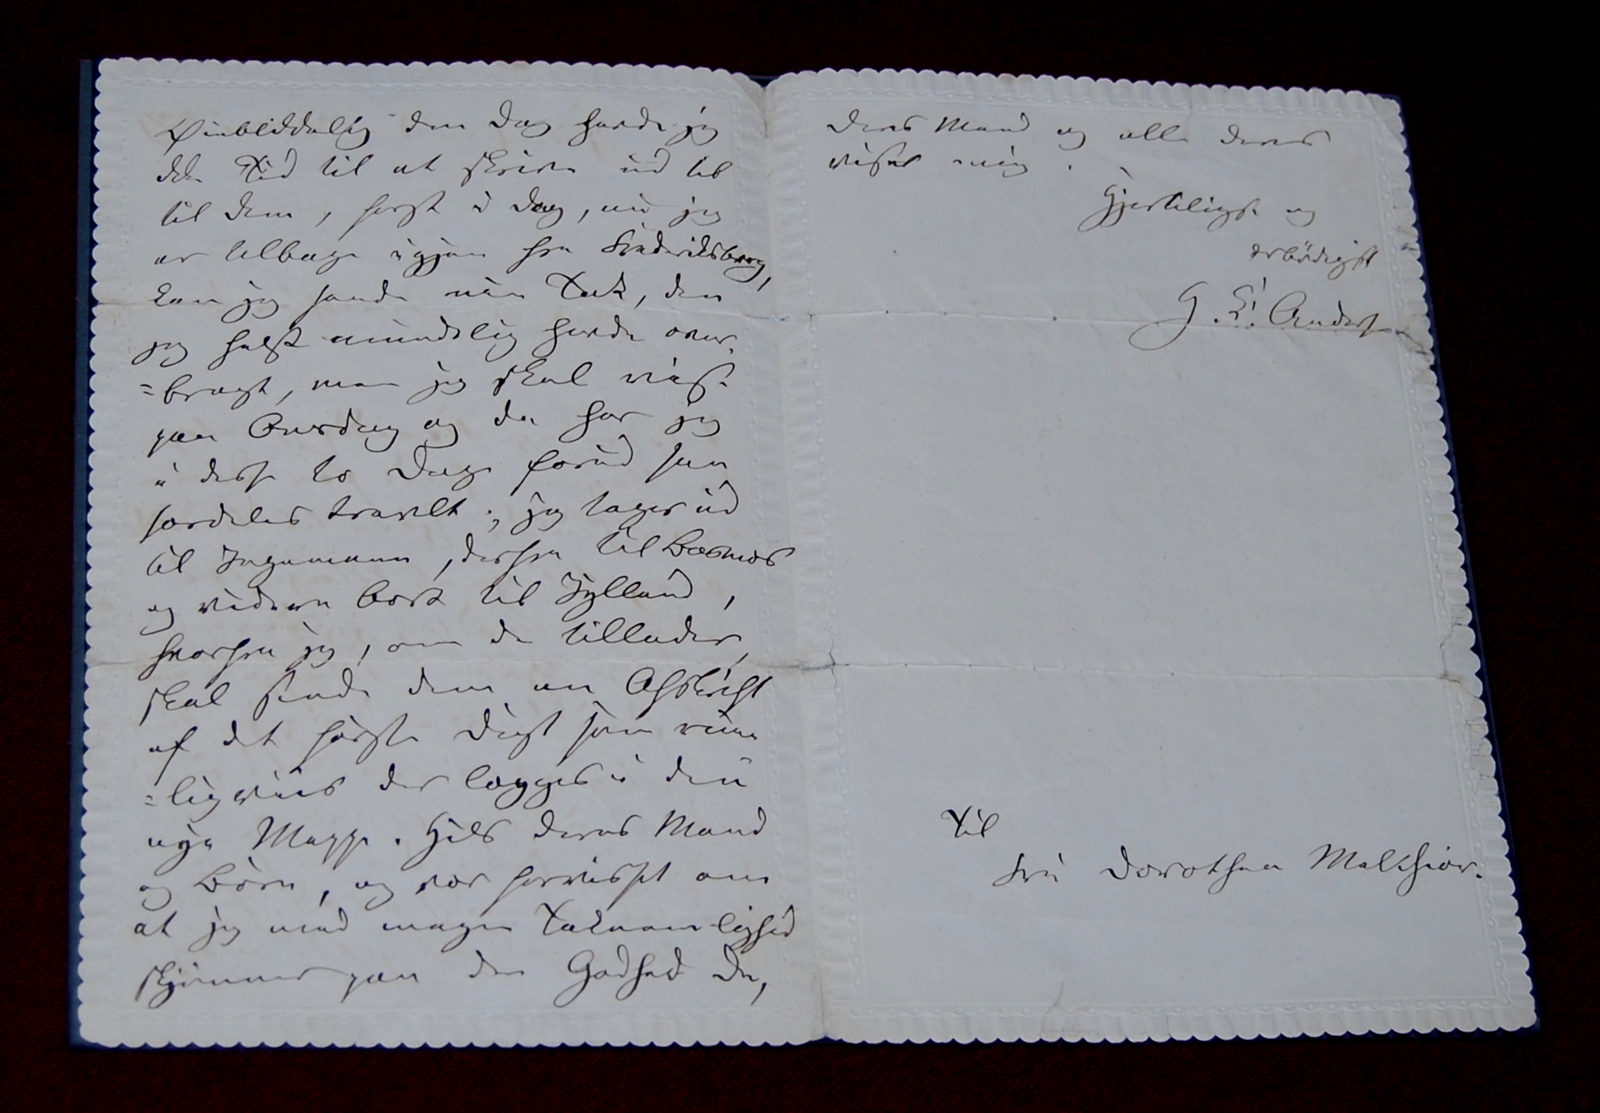 Øieblikkelig den Dag havde jeg
ikke Tid til at skrive ud til
til Dem, først i Dag, nu jeg
er tilbage igjen fra Frederiksborg,
kan jeg sende min Tak, den
jeg helst mundtlig havde over-
=bragt, men jeg skal reise
paa Onsdag og da har jeg
i disse to Dage forud saa
særdeles travlt; jeg tager ud
til Ingemann, derfra til Basnøs
og videre bort til Jylland,
hvorfra jeg, om De tillader,
skal sende Dem en Afskrift
af det første Digt som rime-
=ligviis der lægges i den
nye Mappe. Hils Deres Mand
og Børn, og vær forvisset om
at jeg med megen Taknemlighed
skjønner paa den Godhed De,
Deres Mand og alle Deres
viser mig.
Hjerteligst og
ærbødigst
H. C. Andersen
Til
Fru Dorothea Melchior.